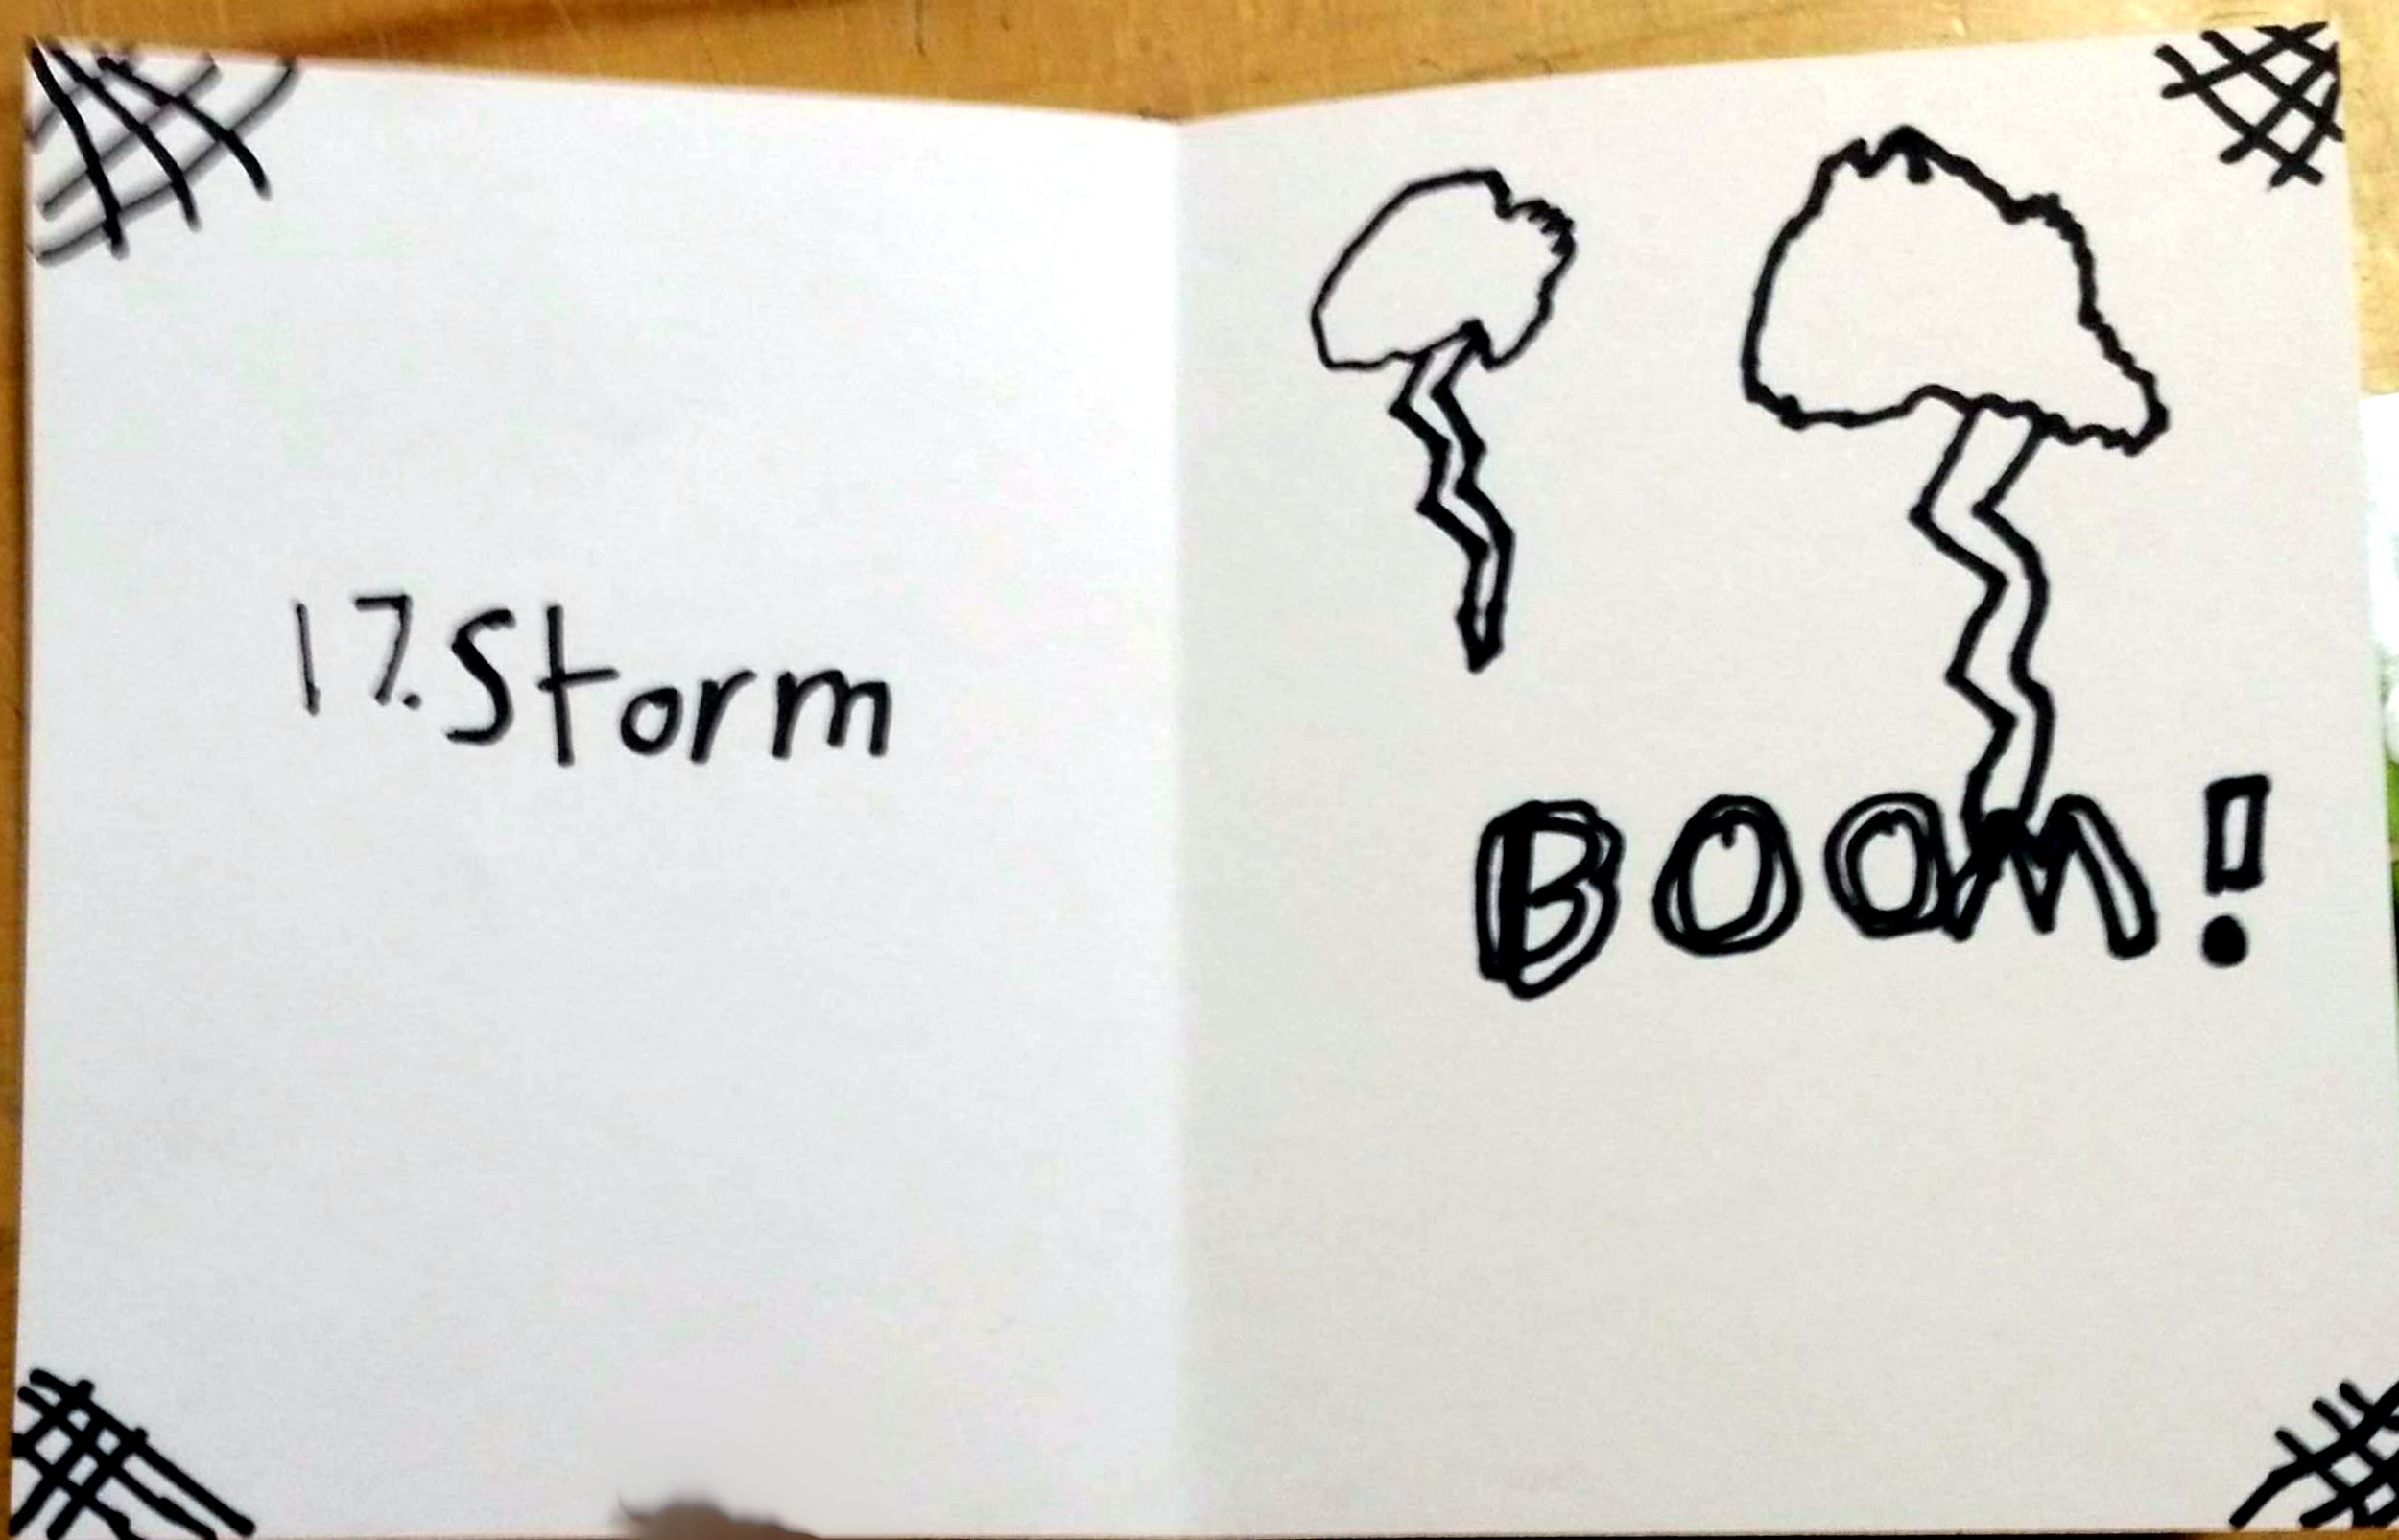 17. Storm
BOOM!